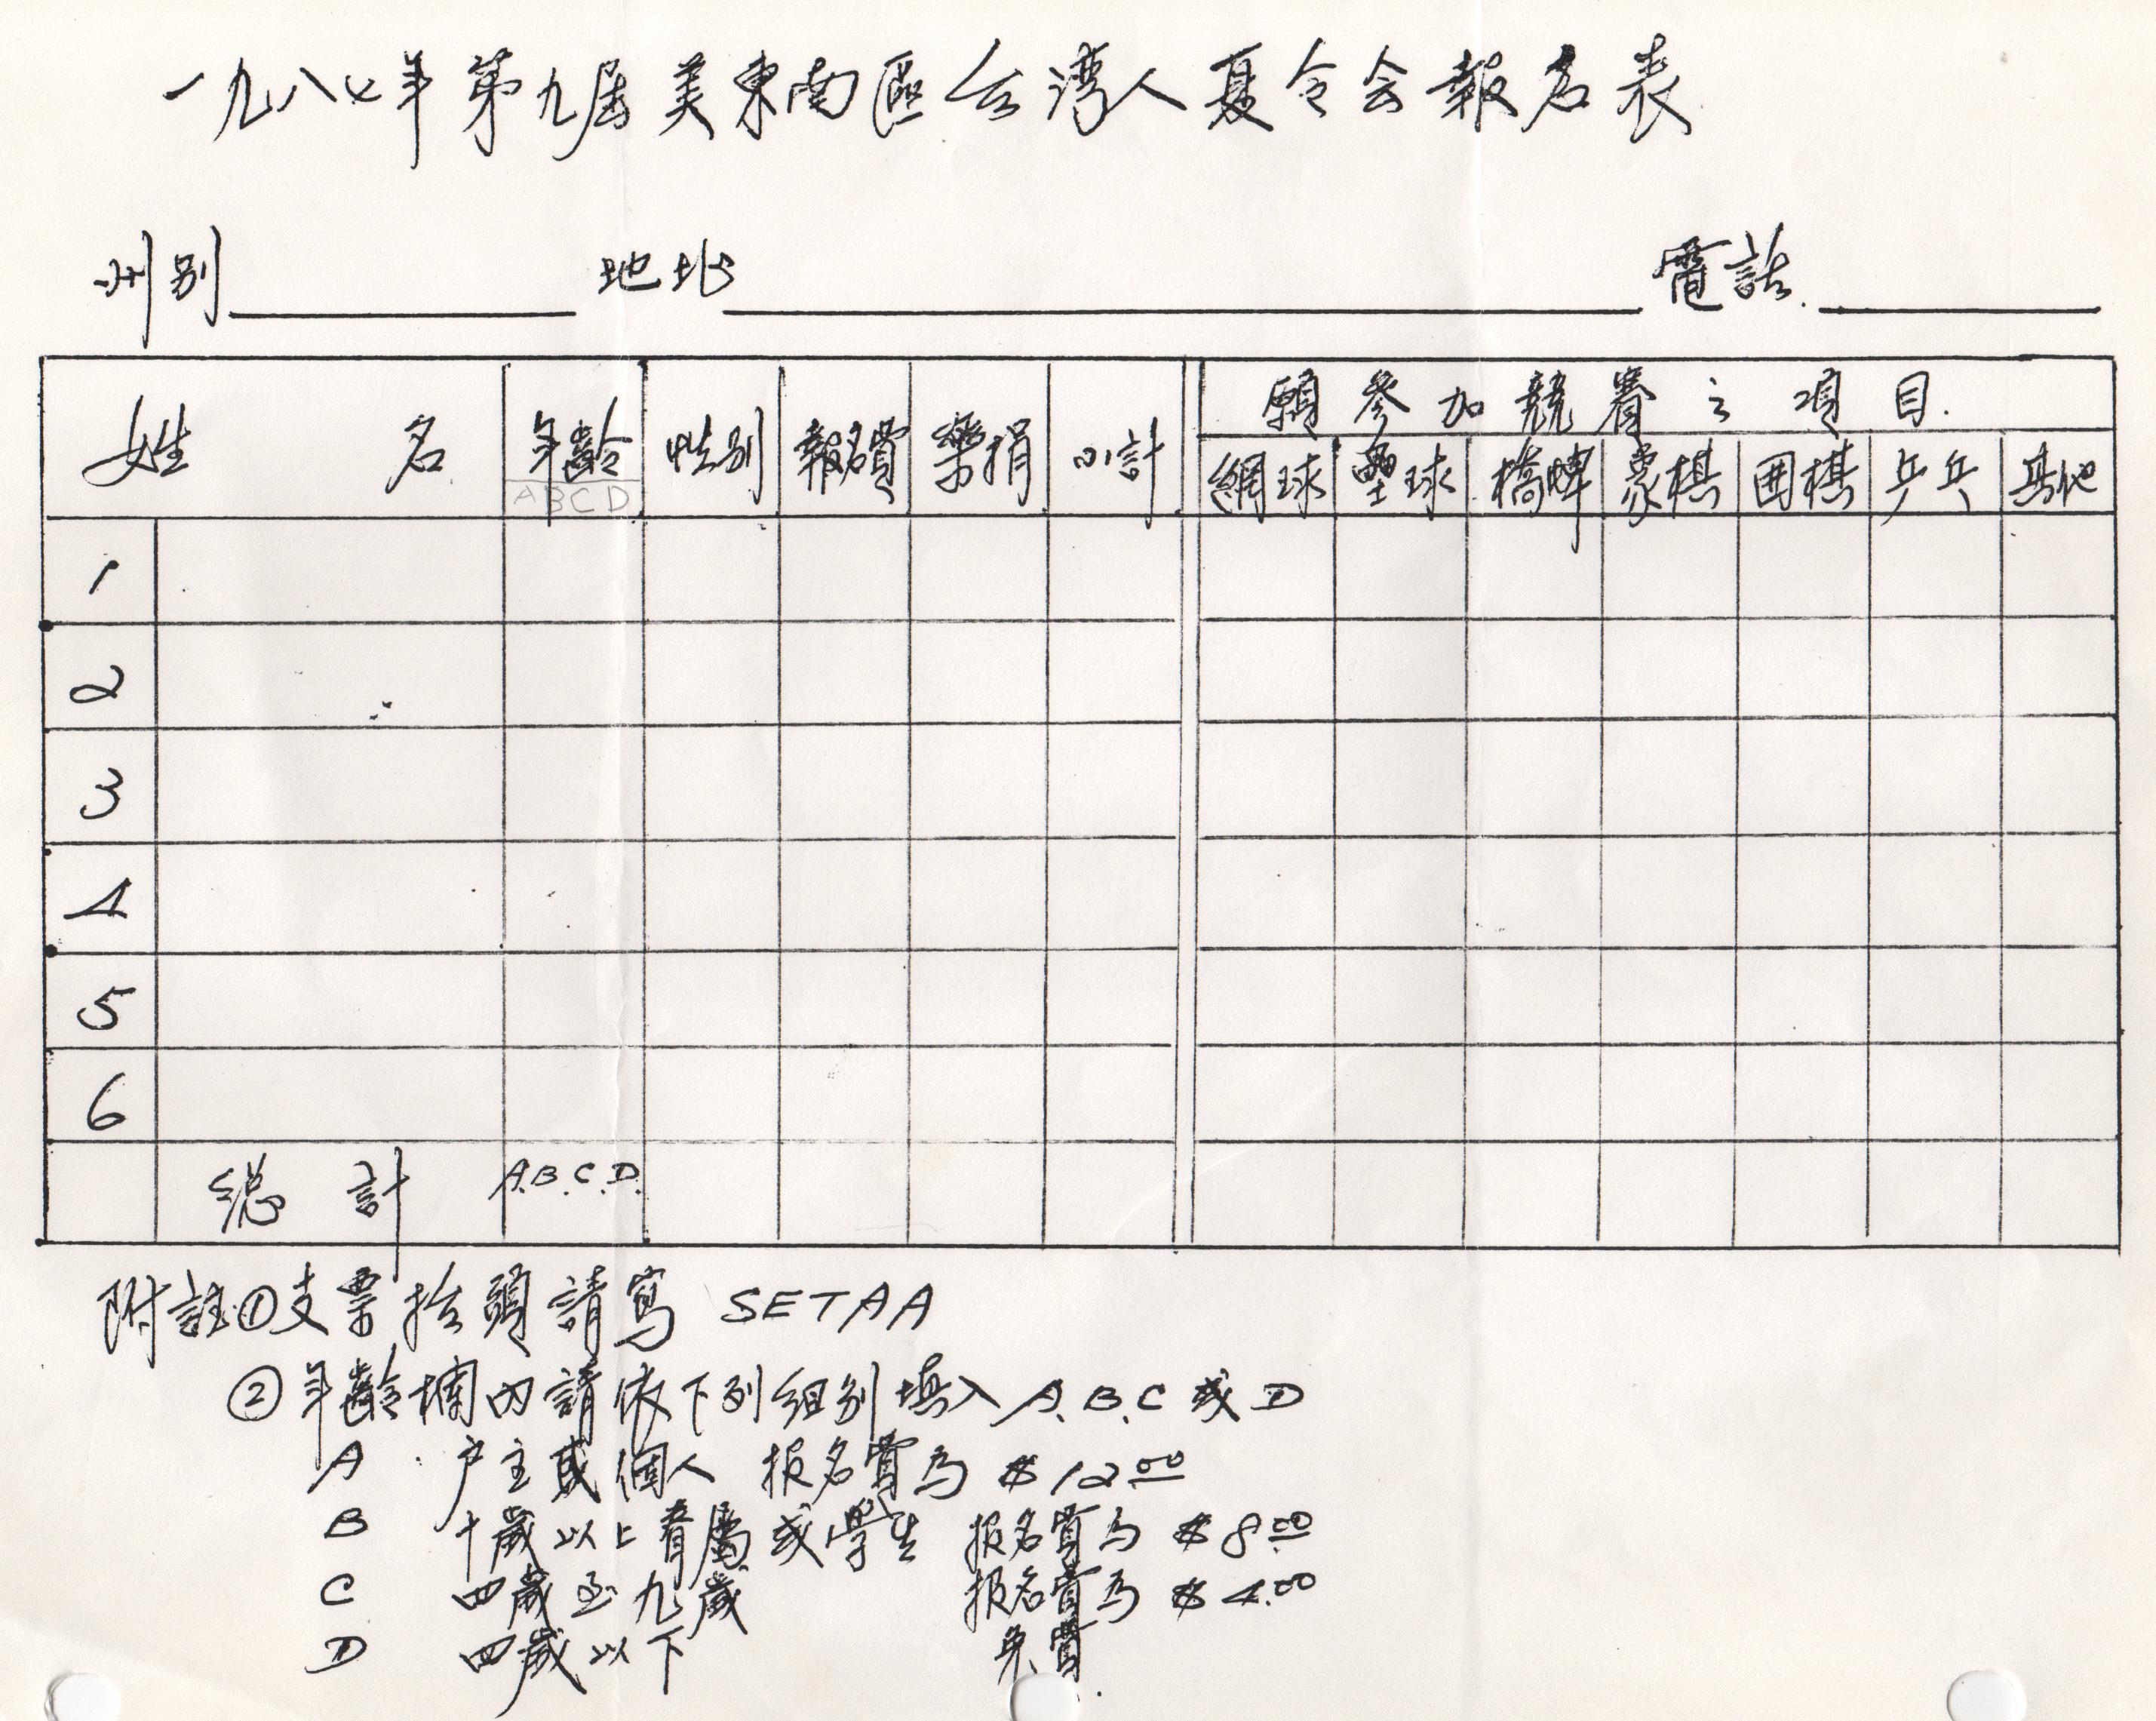 一九八七年第九届美東南區台湾人夏令会報名表
州别 地址 電話
姓名 年齡 性别 報名費 樂捐 小計 願参加競賽之項目
ABCD 網球 壘球 橋牌 象棋 囲棋 乒乓 其他
1
2
3
4
5
6
總計 A.B.C.D.
附註①支票抬頭請寫 SETAA
②年齡欄內請依下列組别填入 A.B.C 或 D
A 户主或個人 报名費為 $12.00
B 十歲以上眷屬或學生 报名費為 $8.00
C 四歲至九歲 报名費為 $4.00
D 四歲以下 免費.